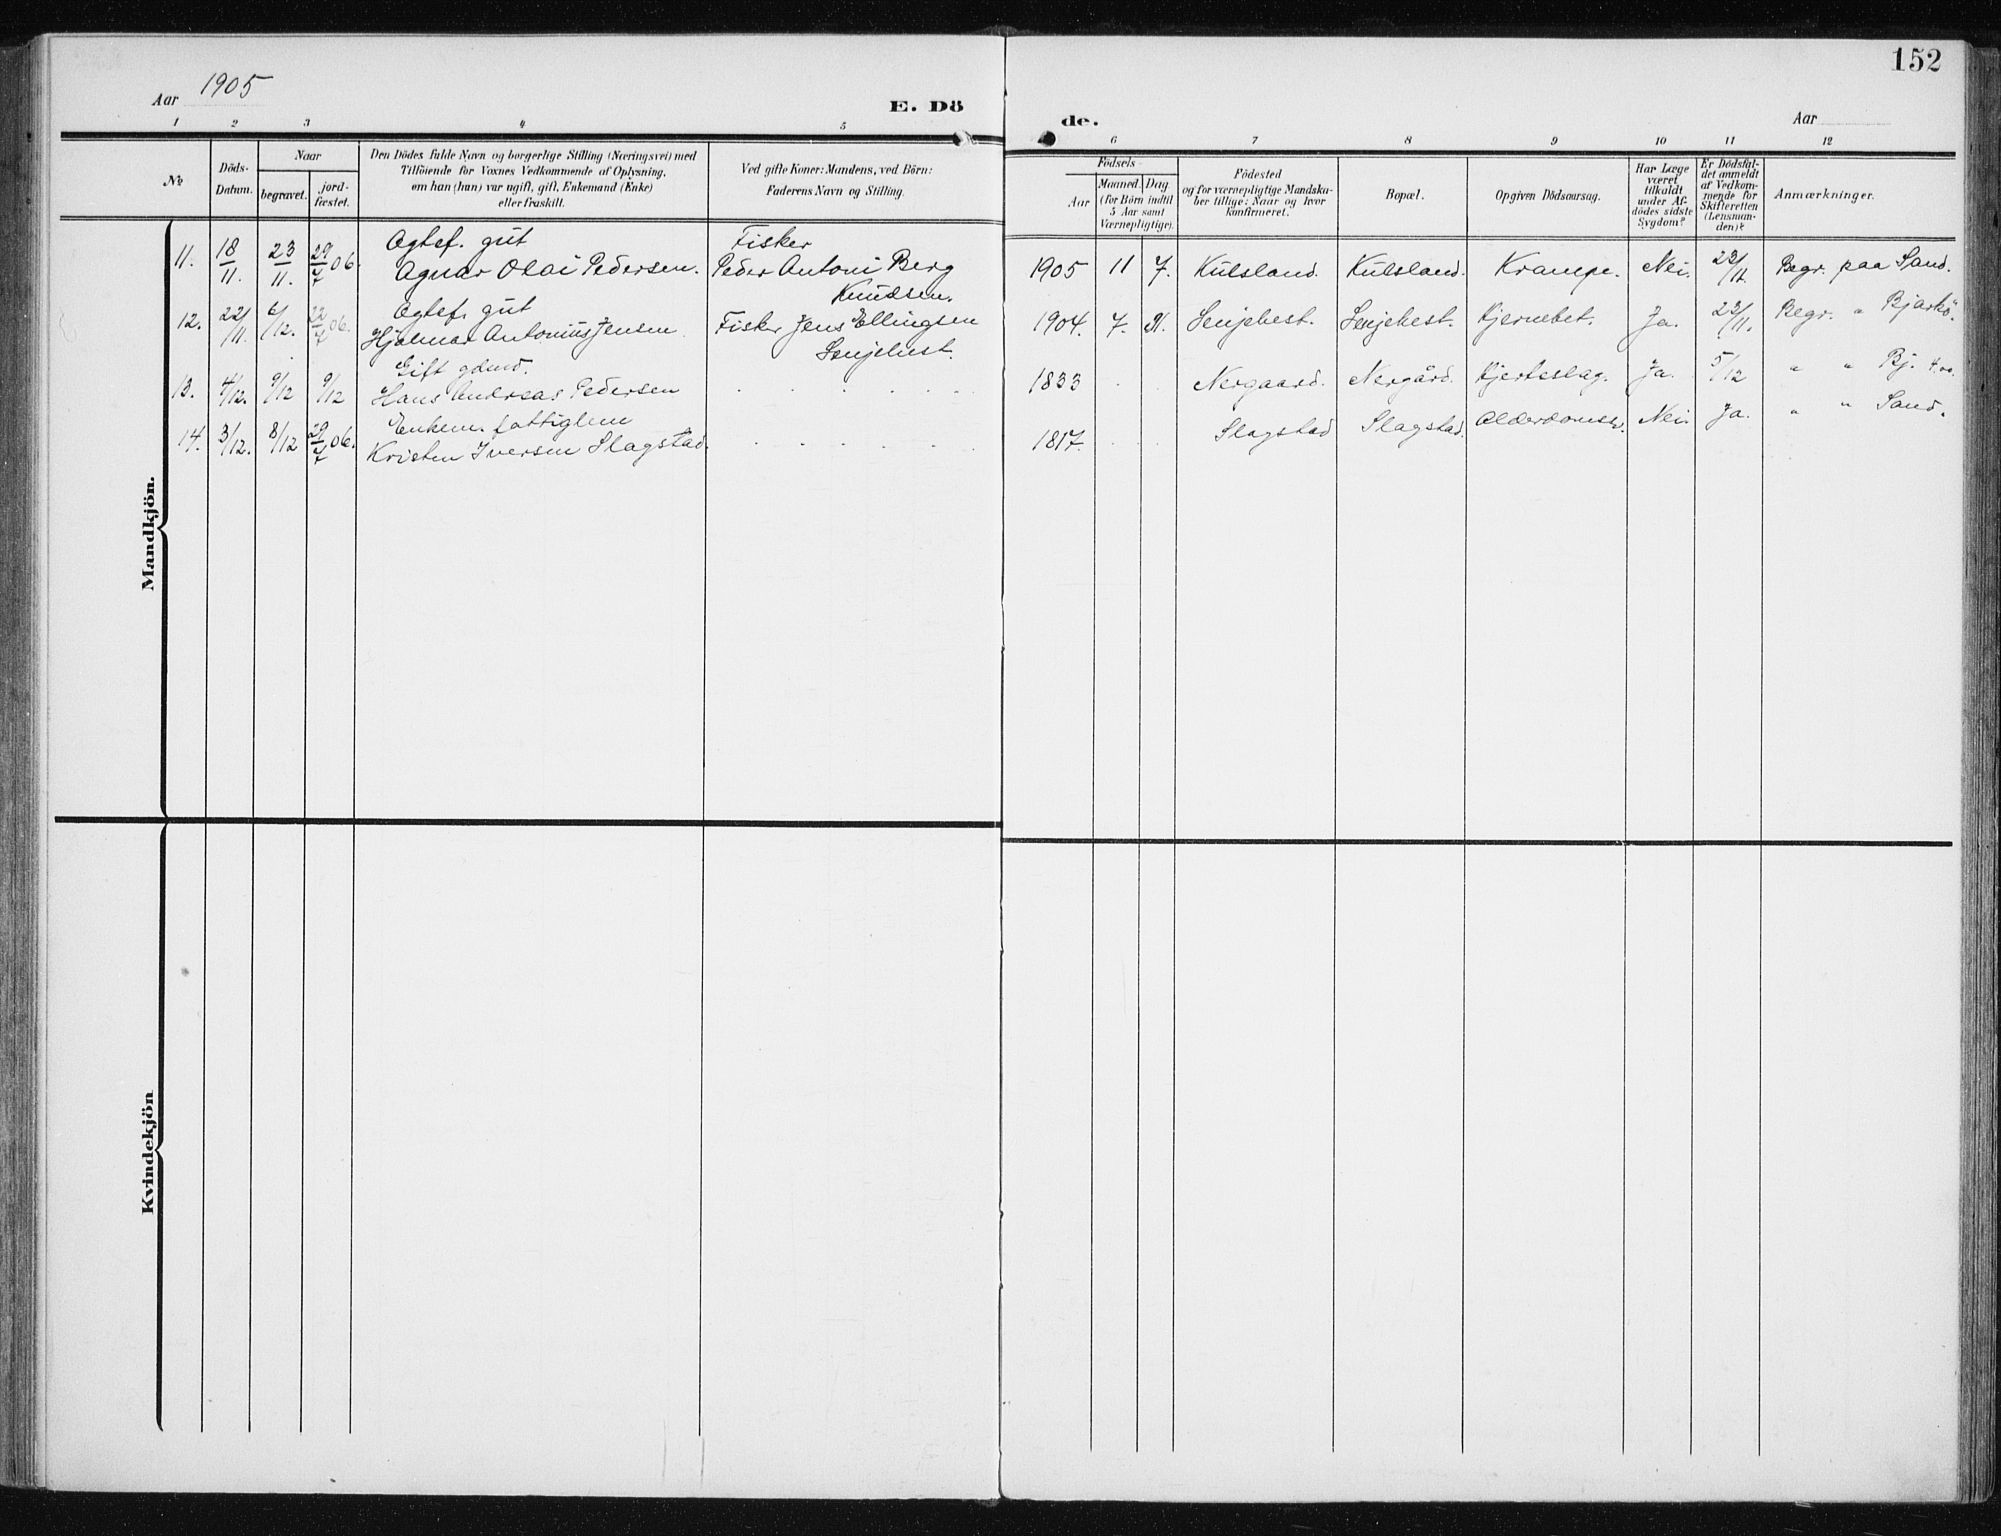 152
Aar 1905
E. Dö
de.
Aar
1 2 3 4 5
6 7 8 9 10 11 12
No
Döds-
Datum.
Naar
begravet.
jord-
fæstet.
Den Dödes fulde Navn og borgerlige Stilling (Næringsvei) med
Tilföiende for Voxnes Vedkommende af Oplysning,
om han (hun) var ugift, gift, Enkemand (Enke)
eller fraskilt.
Ved gifte Koner: Mandens, ved Börn:
Faderens Navn og Stilling.
Födsels
Aar
Maaned. Dag
(for Börn indtil
5 Aar samt
Værnepligtige).
Födested
og for værnepligtige Mandska-
ber tillige: Naar og hvor
konfirmeret.
Bopæl.
Opgiven Dödsaarsag.
Har Læge
været
tilkaldt
under Af-
dödes sidste
Sygdom?
Er Dödsfal-
det anmeldt
af Vedkom-
mende for
Skifteretten
(Lensman-
den)?
Anmærkninger.
Mandkjön.
11. 18/11. 23/11. 29/7 06. Ægtef. gut
Agnar Olai Pedersen.
Fisker
Peder Antoni Berg
Knudsen.
1905 11 7. Kulsland. Kulsland. Krampe. Nei. 23/11. Begr. paa Sand.
12. 22/11. 6/12. 22/7 06. Ægtef. gut
Hjalmar Antonius Jensen.
Fisker Jens Ellingsen
Senjehest.
1904. 7. Senjehest. Senjehest. Hjernebet. Ja. 23/11. Begr. " Bjarkö.
13. 4/12. 9/12 9/12 Gift gdmd.
Hans Andreas Pedersen
1833 Nergaard. Nergård. Hjerteslag. Ja. 5/12 " " Bj.
14. 3/12. 8/12 29/7 06. Enkem. fattiglem
Kristen Iversen Slagstad.
1817. Slagstad Slagstad. Alderdomssv. Nei. Ja. " " Sand.
Kvindekjön